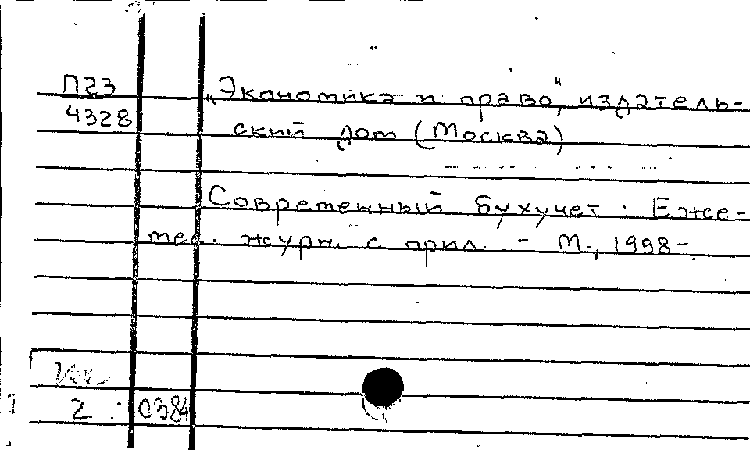 П23
4328
„Экономика и право", издатель-
ский дом (Москва)
Современный бухучет. Еже-
мес. журн. с прил. - М., 1998-
2 0384